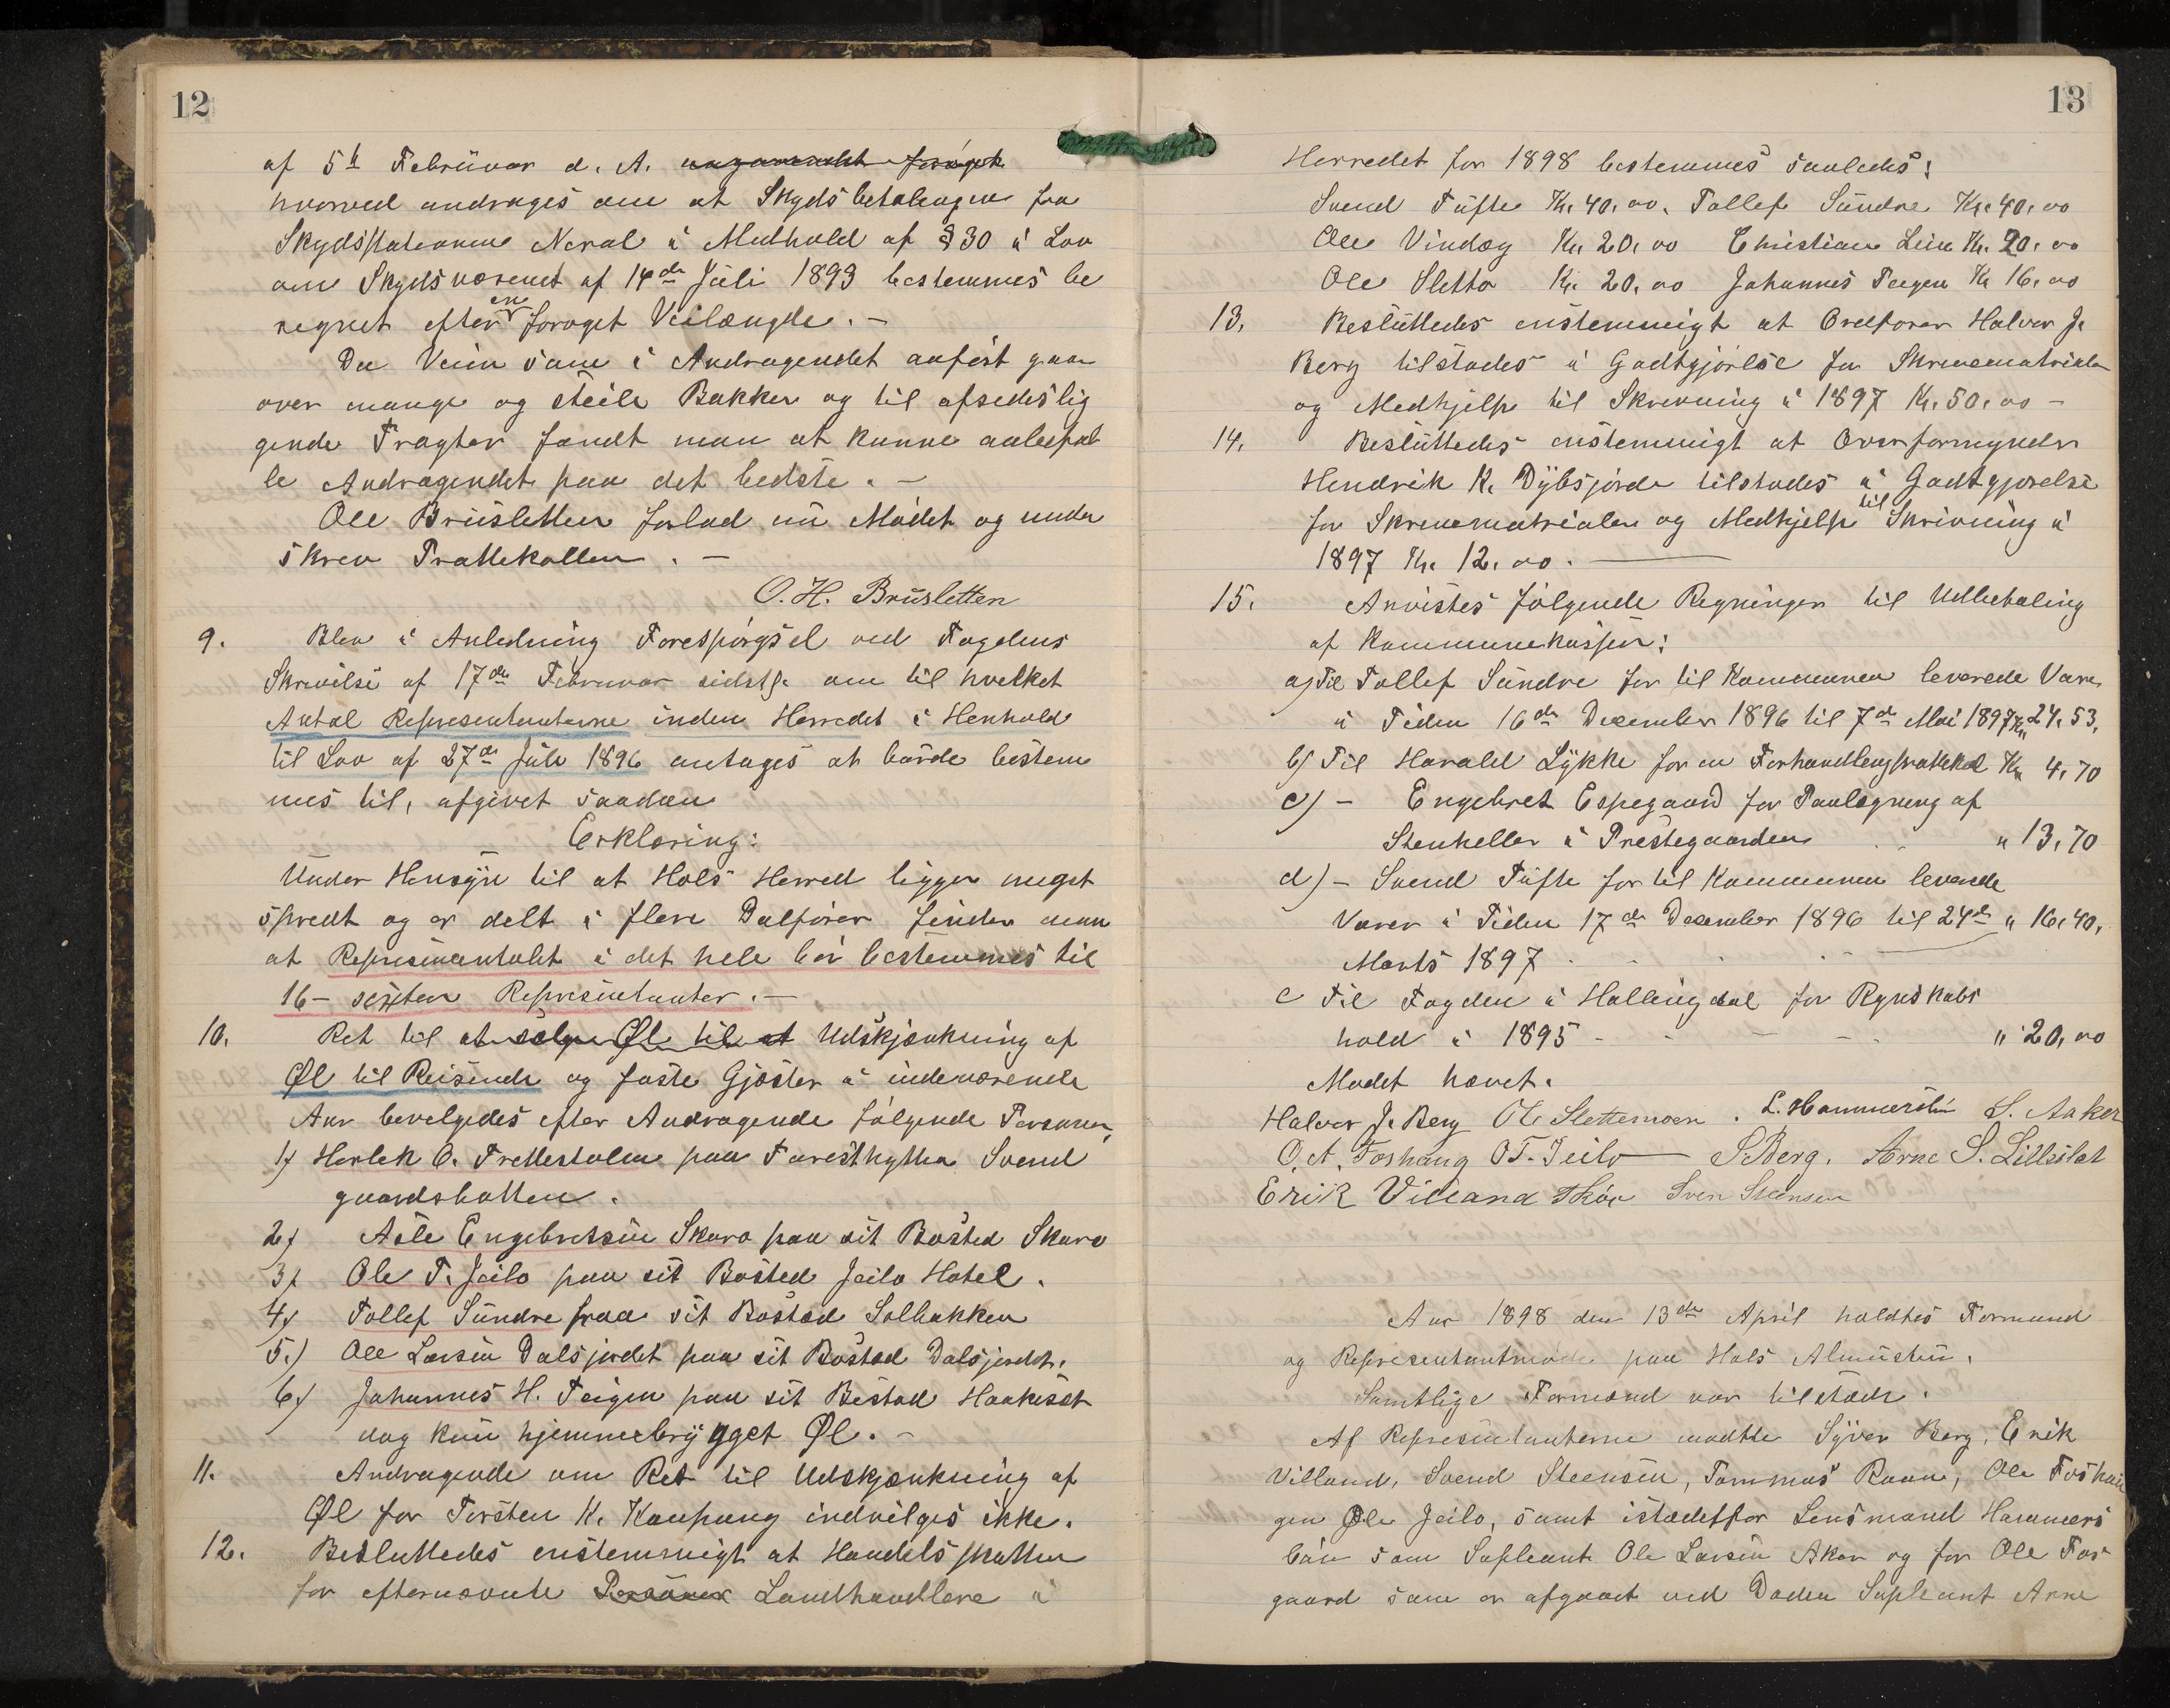 12
af 5te Februar d. A.
hvorved andrages om at Skydsbetalingen fra
Skydsstationen Neral i Medhold af § 30 i Lov
om Skydsvæsenet af 14de Juli 1893 bestemmes be
regnet efter en forøget Veilængde. —
Da Veien som i Andragendet anført gaar
over mange og steile Bakker og til afsideslig
gende Fragter fandt man at kunne anbefal
le Andragendet paa det bedste. —
Ole Brusletten forlod nu Mødet og under
skrev Prottekollen. —
O. H. Brusletten
9. Blev i Anledning Forespørgsel ved Fogdens
Skrivelse af 17de Februar sidstl. om til hvilket
Antal Representanterne inden Herredet i Henhold
til Lov af 27de Juli 1896 antages at burde bestem
mes til, afgivet saadan
Erklæring:
Under Hensyn til at Hols Herred ligger meget
spredt og er delt i flere Dalfører finder man
at Represenantalet i det hele bør bestemmes til
16 - sexten Representanter. —
10. Ret til at sælge Øl til at Udskjænkning af
Øl til Reisende og faste Gjæster i indeværende
Aar bevelgedes efter Andragende følgende Personer,
1) Herlek O. Trettestølen paa Turisthytten Svend
gaardsbotten.
2) Asle Engebretsen Skaro paa sit Bosted Skaro
3) Ole T. Jeilo paa sit Bosted Jeilo Hotel.
4) Tollef Sundre paa sit Bostad Solbakken
5.) Ole Larsen Dalsjordet paa sit Bostad Dalsjordet.
6) Johannes H. Teigen paa sit Bestad Haakiset
dog kun hjemmebrygget Øl. —
11. Andragende om Ret til Udskjænkning af
Øl for Torsten K. Kaupang indvilges ikke.
12. Besluttedes enstemmigt at Handelsskatten
for efternævnte Personer Landhandlere i
13
Herredet for 1898 bestemmes saaledes:
Svend Tufte Kr. 40.00. Tollef Sundre Kr. 40.00
Ole Vindeg Kr. 20.00 Christian Lein Kr. 20.00
Ole Sletto Kr. 20.00 Johannes Teigen Kr 16.00
13. Besluttedes enstemmigt at Ordfører Halvor J.
Berg tilstodes i Godtgjørlse for Skrivematrialer
og Medhjelp til Skrivning i 1897 Kr. 50.00 —
14. Besluttedes enstemmigt at Overformynder
Hendrik K. Dybsjorde tilstodes i Godtgjørelse
for Skrivematrialer og Medhjelp til Skrivning i
1897 Kr. 12.00. —
15. Anvistes følgende Regninger til Udbetaling
af Kommunekassen:
a) Til Tollef Sundre for til Kommunen leverede Varer
i Tiden 16de December 1896 til 7de Mai 1897 Kr. 24.53.
b) Til Harald Lykke for en Forhandlingsprottekol Kr 4.70
c) — Engebret Espegaard for Paalægning af
Stenheller i Prestegaarden " 13.70
d) — Svend Tufte for til Kommunen leverede
Varer i Tiden 17de December 1896 til 24de " 16.40.
Marts 1897
e Til Fogden i Hallingdal for Regnskabs
hold i 1895 " 20.00
Mødet hævet.
Halvor J. Berg Ole Slettemoen. L. Hammersbøn S. Aaker
O. A. Foshaug O T. Jeilo — S Berg. Arne S. Lilleslet
Erik Villand Thor Sven Steensen
Aar 1898 den 13de April holdtes Formand
og Representantmøde paa Hols Almustue.
Samtlige Formænd var tilstæde.
Af Representanterne mødtte Syver Berg, Erik
Villand, Svend Steensen, Tommas Raan, Ole Foshau
gen Ole Jeilo, samt istædetfor Lensmand Hammers
bøn som Supleant Ole Larsen Aker og for Ole Tor
gaard som er afgaaet ved Døden Supleant Arne